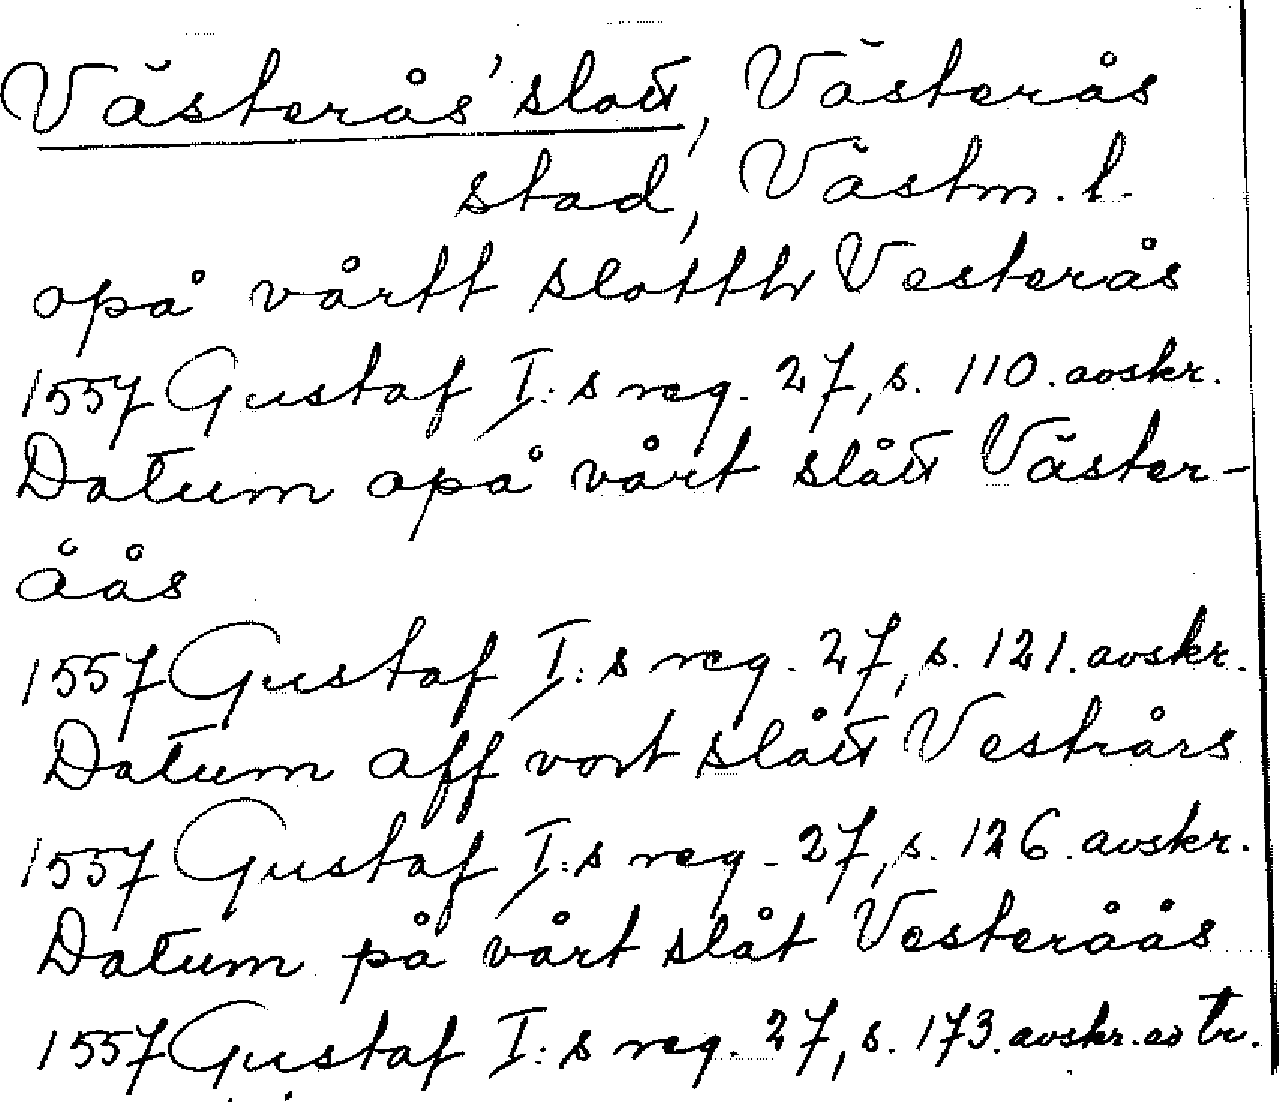 Västerås' slott, Västerås
stad, Västm. l.
opå vårtt slotth Vesterås
1557 Gustaf I:s reg. 27, s. 110. avskr.
Datum opå vårt slått Väster-
åås
1557 Gustaf I:s reg. 27, s. 121. avskr.
Datum aff vort slått Vestrårs
1557 Gustaf I:s reg. 27, s. 126. avskr.
Datum på vårt slåt Vesteråås
1557 Gustaf I:s reg. 27, s. 173. avskr. av tr.